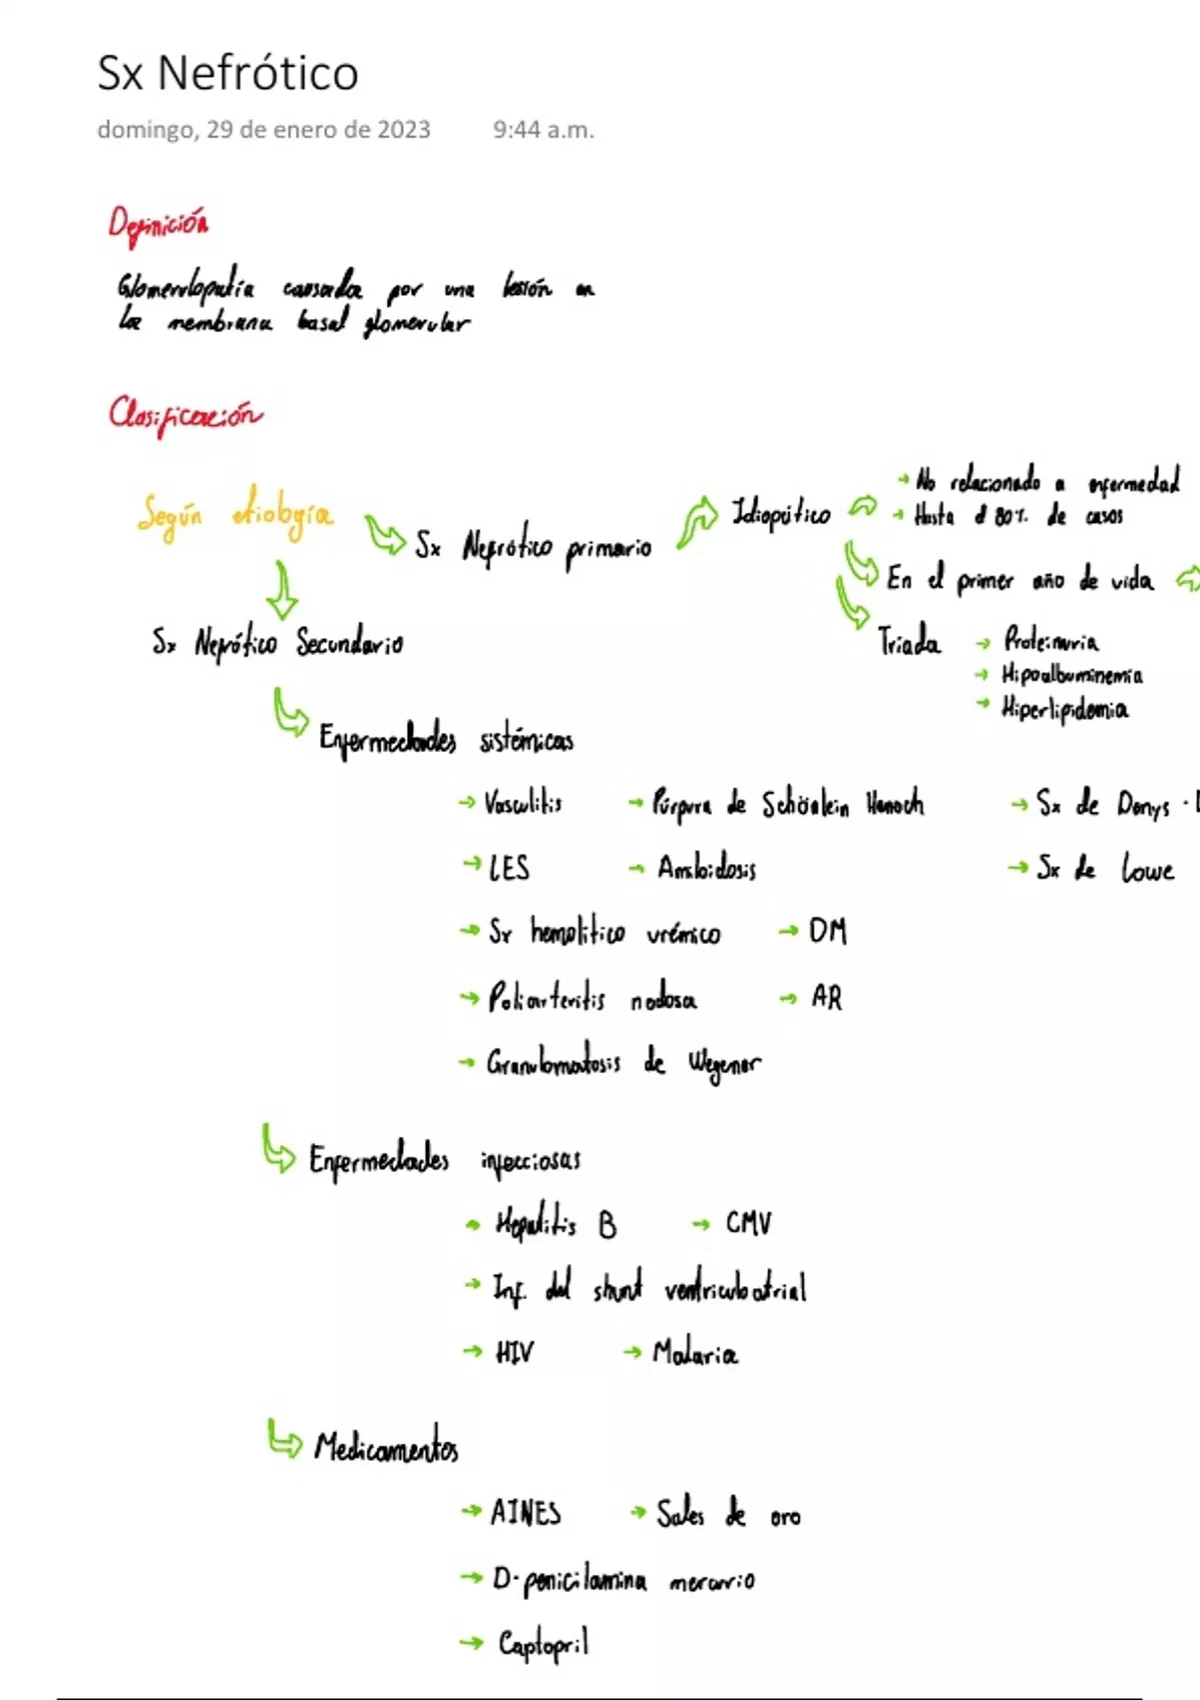 Sx Nefrótico
domingo, 29 de enero de 2023 9:44 a.m.
Definición
Glomerulopatía causada por una lesión en
la membrana basal glomerular
Clasificación
Según etiología
Sx Nefrótico primario
Idiopático
→ No relacionado a enfermedad
→ Hasta el 80% de casos
En el primer año de vida
Triada → Proteinuria
→ Hipoalbuminemia
→ Hiperlipidemia
Sx Nefrótico Secundario
Enfermedades sistémicas
→ Vasculitis → Púrpura de Schönlein Henoch → Sx de Denys -
→ LES → Amiloidosis → Sx de Lowe
→ Sx hemolítico urémico → DM
→ Poliarteritis nodosa → AR
→ Granulomatosis de Wegener
Enfermedades infecciosas
→ Hepatitis B → CMV
→ Inf. del shunt ventriculoatrial
→ HIV → Malaria
Medicamentos
→ AINES → Sales de oro
→ D-penicilamina mercurio
→ Captopril